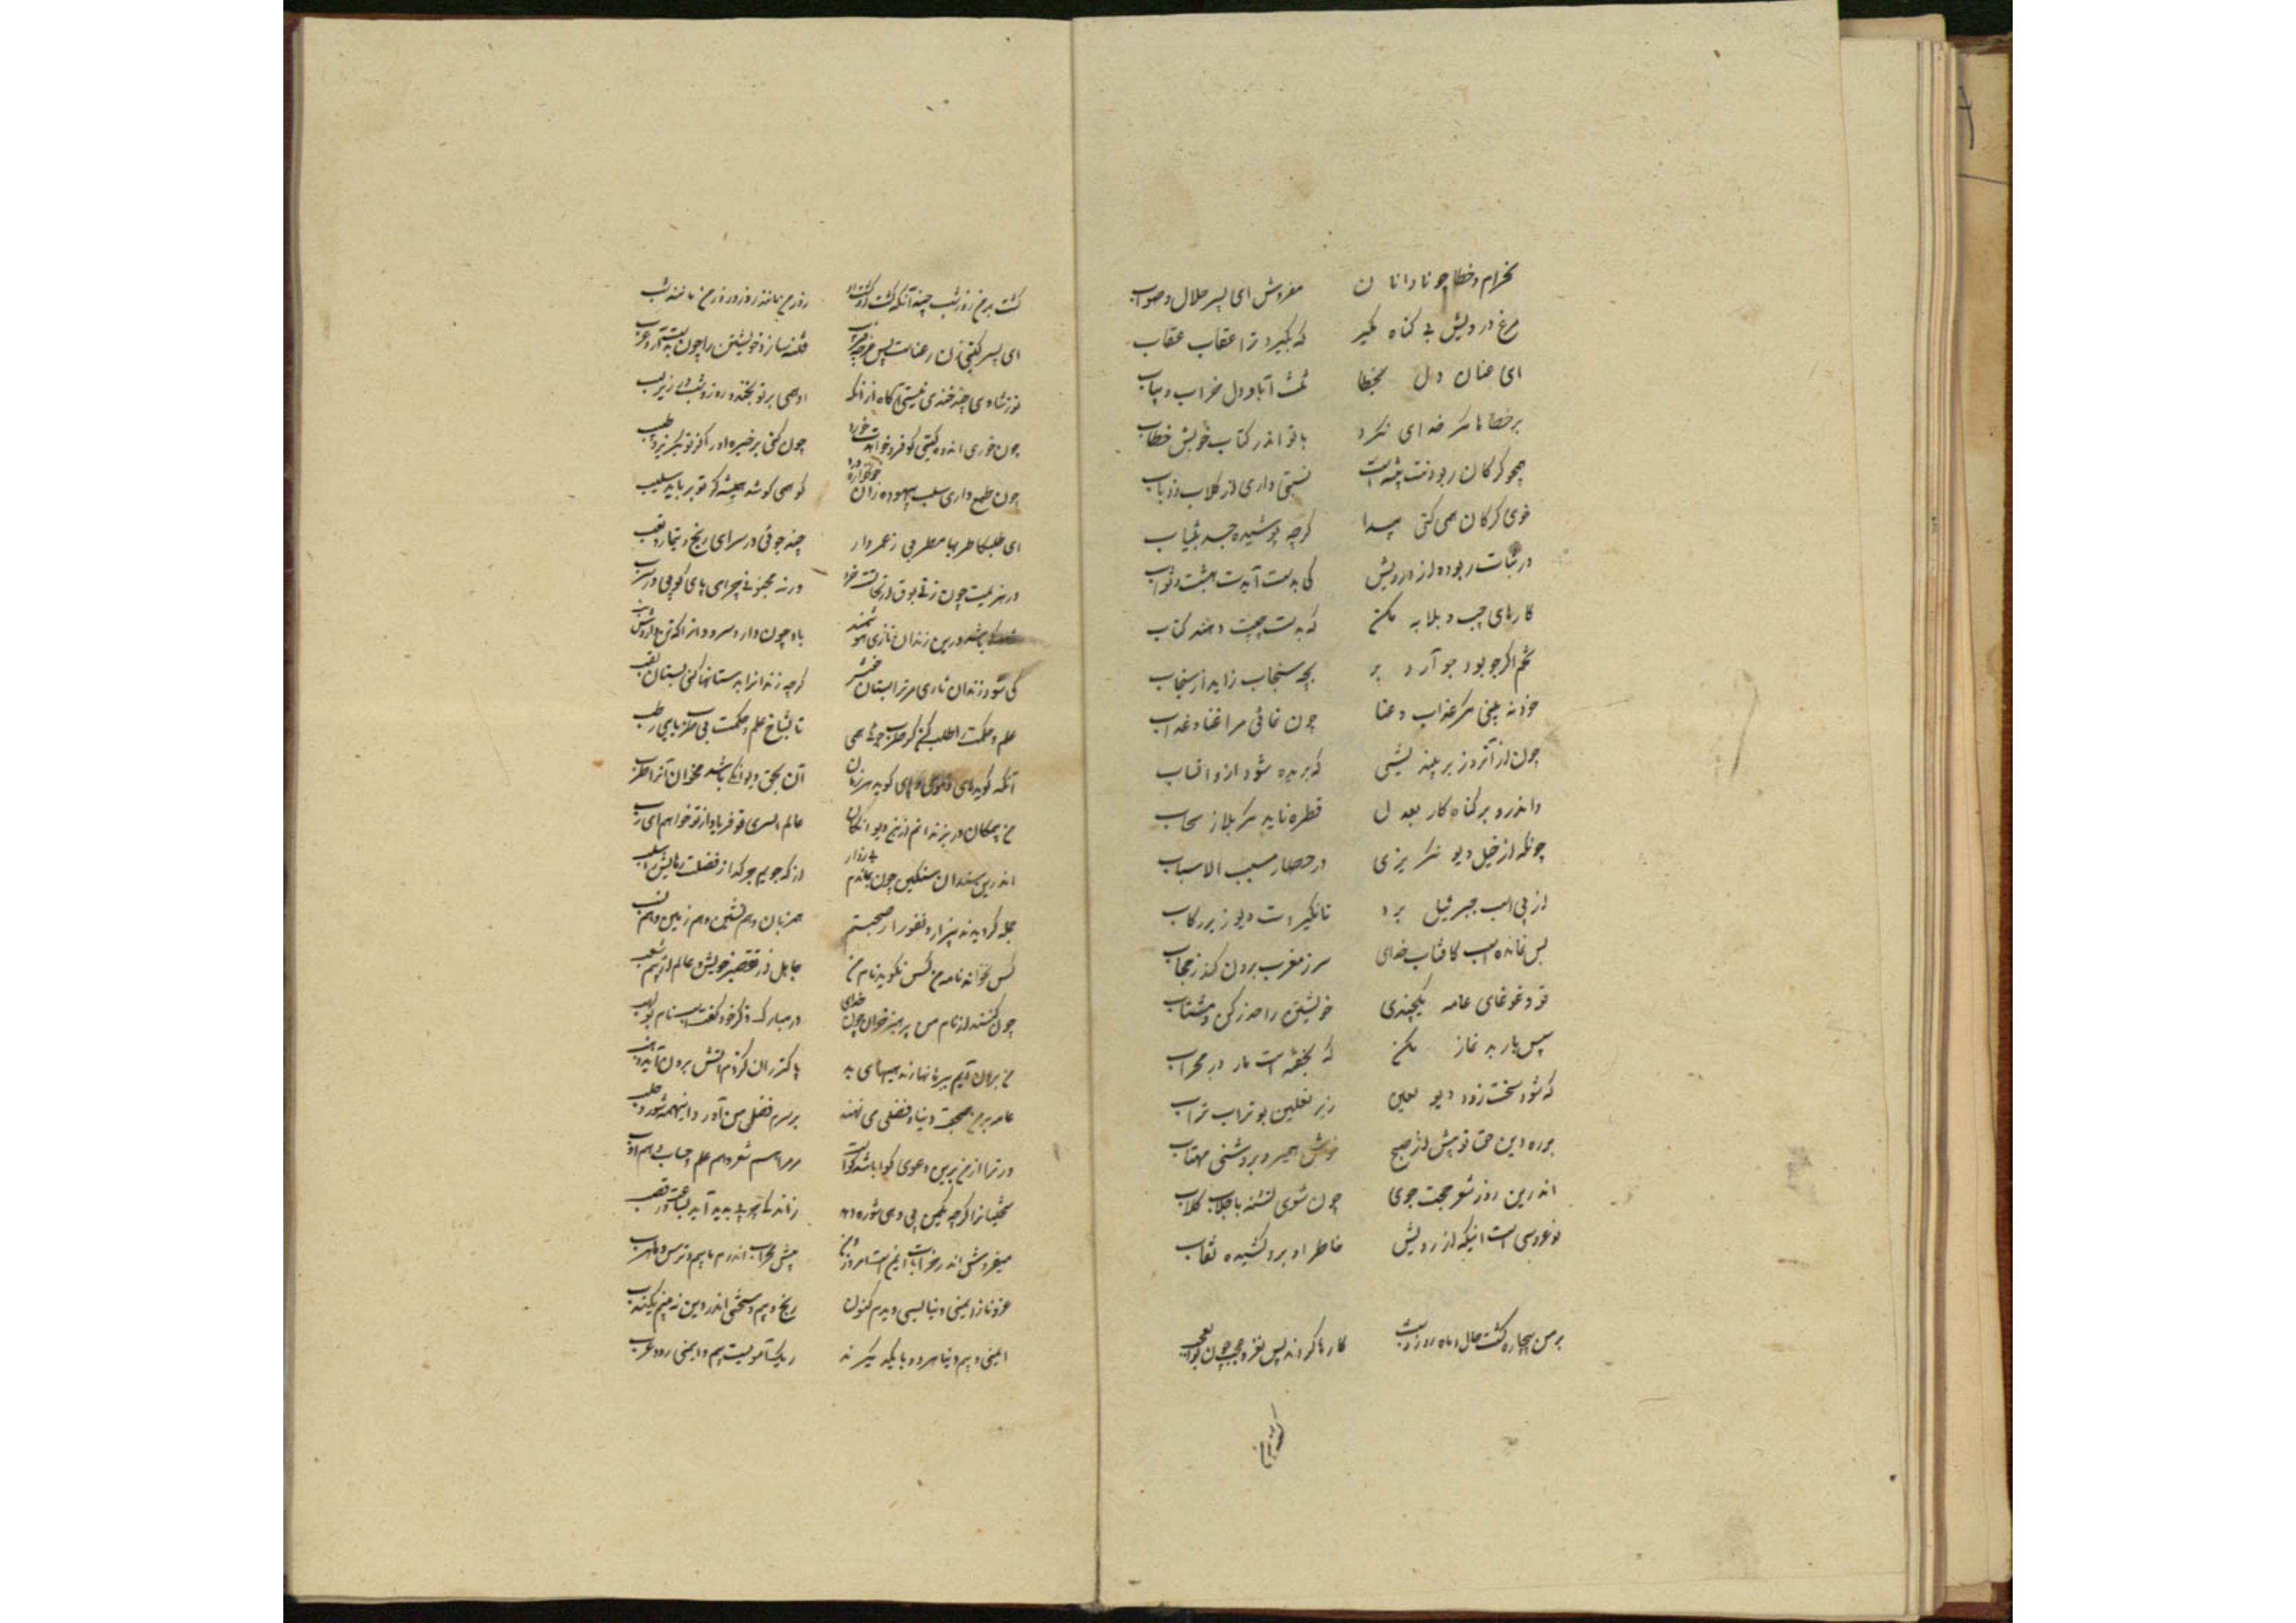 بحرام و خطا چو نادانان مفروش ای پسر حلال و صواب
مرغ درویش بی گناه مگیر که بگیرد ترا عقاب عقاب
ای عنان دل بخطا تنت آباد و دل خراب و یباب
بر خطاها مگر خدای نکرد با تو اندر کتاب خویش خطاب
همچو گرگان ربودنت پیشه است نسبتی داری از کلاب و ذئاب
خوی گرگان همی کنی پیدا گرچه پوشیده جسد بثیاب
در ثبات ربوده از درویش کی بدست آیدت بهشت و ثواب
کارهای چپ و بلابه مکن که بدست چپت دهند کتاب
تخم اگر جو بود جو آرد بر بچه سنجاب زاید از سنجاب
خود نه بینی مگر عذاب و عنا چون نمائی مرا عنا و عذاب
چون از آنروز بر نیندیشی که بریده شود درو انساب
واندرو بر گناه کار بعدل قطره ناید مگر بلا ز سحاب
چونکه از خیل دیو نگریزی در حصار مسبب الاسباب
از پی اسب جبرئیل برو تا نگیردت دیو زیر رکاب
بس نمانده است کافتاب خدای سر ز مغرب برون کند ز حجاب
تو و غوغای عامه یکچندی خویشتن را حذر کن و مشتاب
سپس یار بد نماز مکن که بخفته است مار در محراب
که شود سخت زود دیو لعین زیر نعلین بوتراب تراب
بر ره دین حق تو پیش از صبح خوش همیرو بروشنی مهتاب
اندرین روز شعر حجت جوی چون شوی تشنه با جلاب گلاب
نو عروسی است اینکه از رویش خاطر او برو کشیده نقاب
بر من بیچاره گشت سال و ماه و روز و شب کارها کردند بس نغز و عجب چون بوالعجب
گشت بر من روز و شب چندانکه گشت از گشت او روز من مانند روز و روز من مانند شب
ای پسر گیتی زن رعناست بس غرچه فریب فتنه سازد خویشتن را چون بدست آرد عزب
تو ز شادی چند خندی نیستی آگاه از آنکه او همی بر تو بخندد روز و شب در زیر لب
چون خوری اندوه گیتی کو فرو خواهدت خورد چون کنی بر خیره او را کز تو بگریزد طلب
چون طمع داری سلب بیهوده زان خونخواره دزد کو همی کوشد همیشه کز تو برباید سلب
ای طلبکار طربها مطربی ز غمر وار چند جوئی در سرای رنج و تیمار و تعب
در هزیمت چون زنی بوق ار بجاستت خرد ورنه مجنونی چرا می پای کوبی در سرب
شاد کی باشد درین زندان تازی هوشمند باد چون دارد سرود آنرا که تن دارد
کی شود زندان تاری مر ترا بستان خوش گرچه زندانرا بدستانها کنی بستان لقب
علم و حکمت را طلب کن گر طرب جوئی همی تا بشاخ علم و حکمت پر طرب یابی رطب
آنکه گوید های و هوی و پای کوبد هر زمان آن بحق دیوانگی باشد مخوان آنرا طرب
من بیمگان در بزندانم ازین دیوانگان عالم السری تو فریاد از تو خواهم ای رب
اندرین زندان سنگین چون بماندم بی زوار از که جویم جز که از فضلت رهایش را سبب
جمله گردیدند بیزار و نفور از صحبتم همزبان و هم نشین و هم زمین و هم نسب
کس نخواند نامه من کس نگوید نام من جاهل از تقصیر خویش و عالم از بیم شغب
چون کنند از نام من پرهیز خوان چون خدای در مبارک ذکر خود گفته است نام بولهب
من برون آیم ببرهانها ز مذهبهای بد پاکتر زان کز دم آتش برون آید ذهب
عامه بر من تهمت دینی و فضلی می نهند بر سرم فضل من آورد اینهمه شور و جلب
ور ترا از من بدین دعوی گوا باید گواست مر مرا هم شعر و هم علم و حساب و هم ادب
میفروش اندر خرابات ایمن است امروز و من پیش محراب اندرم با بیم و ترس و با هرب
عز و ناز و ایمنی دنیا بسی دیدم کنون رنج و بیم و سختی اندر دین نه بینم یکندب
ایمنی و بیم دنیا هر دو با یکدیگرند